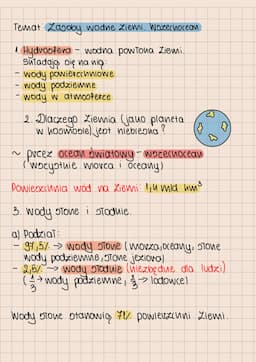 Temat: Zasoby wodne Ziemi. Wszechocean
1. Hydrosfera - wodna powłoka Ziemi.
Składają się na nią:
- wody powierzchniowe
- wody podziemne
- wody w atmosferze
2. Dlaczego Ziemia (jako planeta
w kosmosie) jest niebieska?
~ przez ocean światowy - wszechocean
(wszystkie morza i oceany)
Powierzchnia wód na Ziemi: 1,4 mld km³
3. Wody słone i słodkie.
a) Podział:
- 97,5% → wody słone (morza, oceany, słone
wody podziemne, słone jeziora)
- 2,5% → wody słodkie (niezbędne dla ludzi)
(1/3 → wody podziemne, → lodowce)
Wody słone stanowią 71% powierzchni Ziemi.